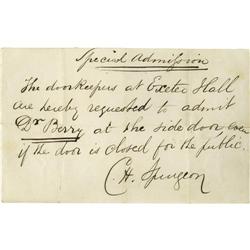 Special Admission
The doorkeepers at Exeter Hall
are hereby requested to admit
Dr Berry at the side door, even
if the door is closed for the public.
C. H. Spurgeon